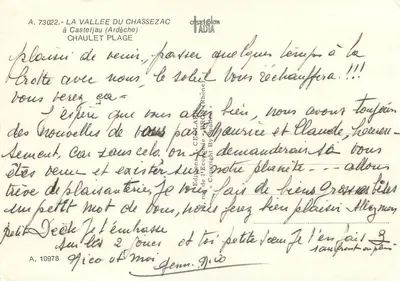 A. 73022. - LA VALLEE DU CHASSEZAC
à Casteljau (Ardèche)
CHAULET PLAGE
plaisir de venir, passer quelques temps à la
Crotte avec nous, le soleil vous réchauffera.!!!
vous verez ça =
J'espère que vous allez bien, nous avons toujours
des nouvelles de vous par Maurice et Claude, heureu-
sement, car sans cela on se demanderais si vous
êtes venue et exister sur notre planète --- allons
trève de plaisanterie, je vous fais de biens Grosses bises
un petit mot de vous, nous ferez bien plaisir
petit Dédé Je t'embrasse
sur les 2 joues et toi petite sœur Je t'en fait 3
Nico et moi
Nico
A. 10978